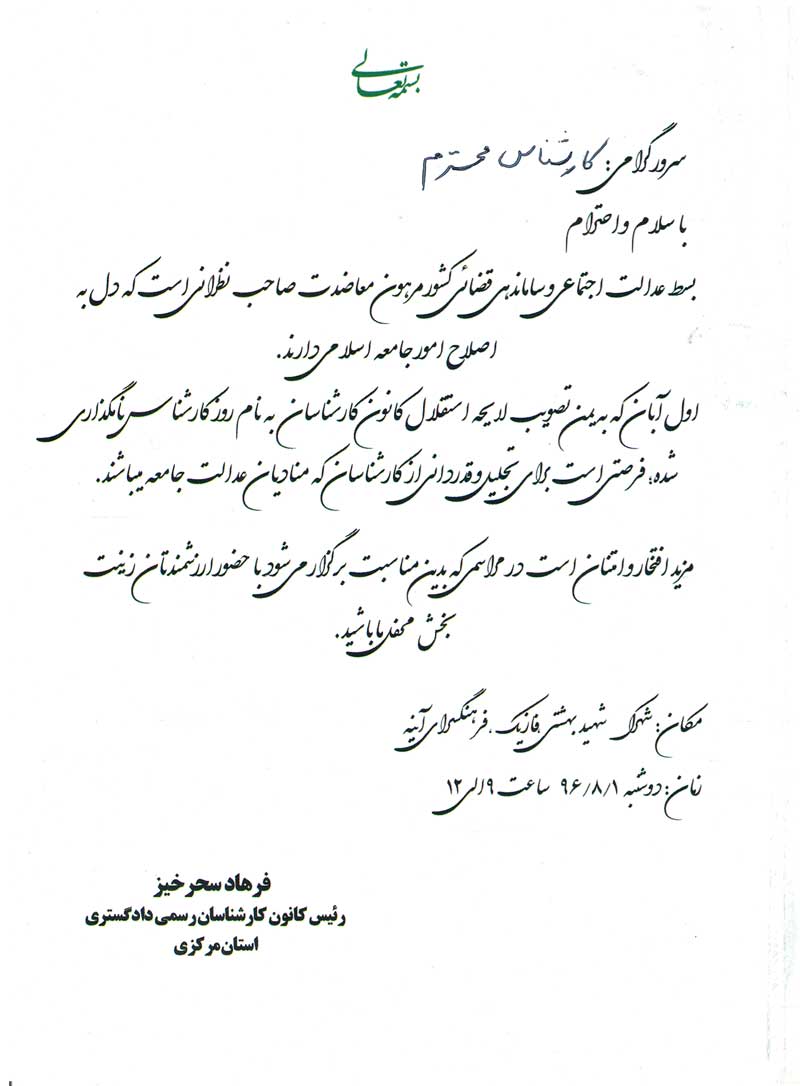 بسمه تعالی
سرور گرامی: کارشناس محترم
با سلام و احترام
بسط عدالت اجتماعی و ساماندهی قضائی کشور مرهون معاضدت صاحب نظرانی است که دل به
اصلاح امور جامعه اسلامی دارند.
اول آبان که به یمن تصویب لایحه استقلال کانون کارشناسان به نام روز کارشناس نامگذاری
شده؛ فرصتی است برای تجلیل و قدردانی از کارشناسان که منادیان عدالت جامعه میباشند.
مزید افتخار و امتنان است در مراسمی که بدین مناسبت برگزار می شود با حضور ارزشمندتان زینت
بخش محفل ما باشید.
مکان: شهرک شهید بهشتی، فازیک، فرهنگسرای آینه
زمان: دوشنبه ۹۶/۸/۱ ساعت ۹ الی ۱۲
فرهاد سحرخیز
رئیس کانون کارشناسان رسمی دادگستری
استان مرکزی